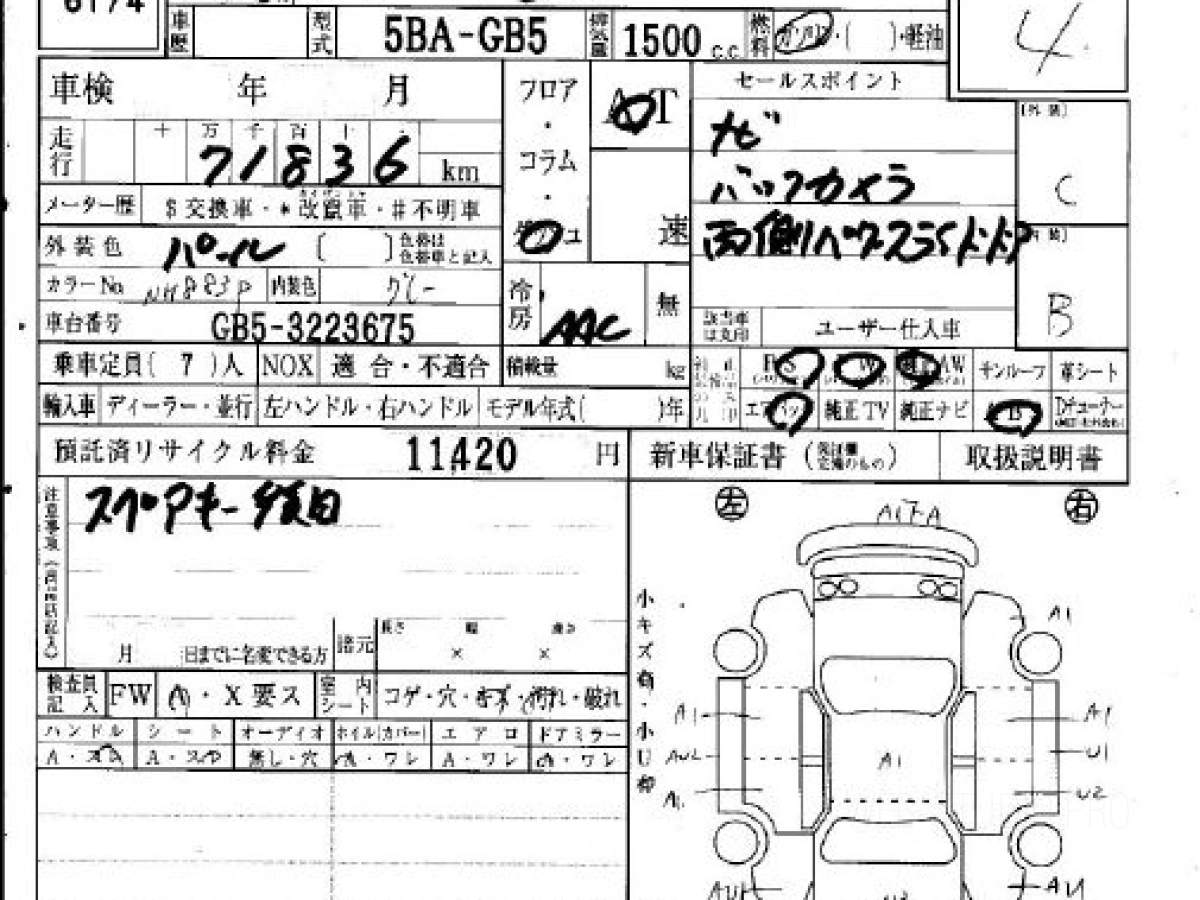 6174
車歴
型式 5BA-GB5 排気量 1500 c.c. 燃料 ガソリン・( )・軽油
4
車検 年 月
フロア・コラム・
AT
速
セールスポイント
ナビ
バックカメラ
両側パワースライドドア
走行 十 万 千 百 十 ・
71836 km
メーター歴 $交換車・*改竄車・#不明車
外装色 パール [ ] 色替は色替車と記入
カラーNo. NH883P 内装色 グレー
車台番号 GB5-3223675
冷房 AAC 無
該当車は〇印 ユーザー仕入車
[外装] C
[内装] B
乗車定員( 7 )人 NOX 適合・不適合 積載量 kg
PS PW AW サンルーフ 革シート
輸入車 ディーラー・並行 左ハンドル・右ハンドル モデル年式( )年
エアバック 純正TV 純正ナビ
預託済リサイクル料金 11,420 円
新車保証書 取扱説明書
注意事項
スペアキー 後日
月 日までに名変できる方 諸元 長さ × 幅 × 高さ
検査員記入 FW A・X要ス 室内シート コゲ・穴・・汚れ・破れ
ハンドル シート オーディオ ホイル(カバー) エアロ ドアミラー
A・スレ A・スレ 無し・穴 A・ワレ A・ワレ A・ワレ
小キズ有・小U有
左 右
A1
A1 A1
U1
A1
A1 U2